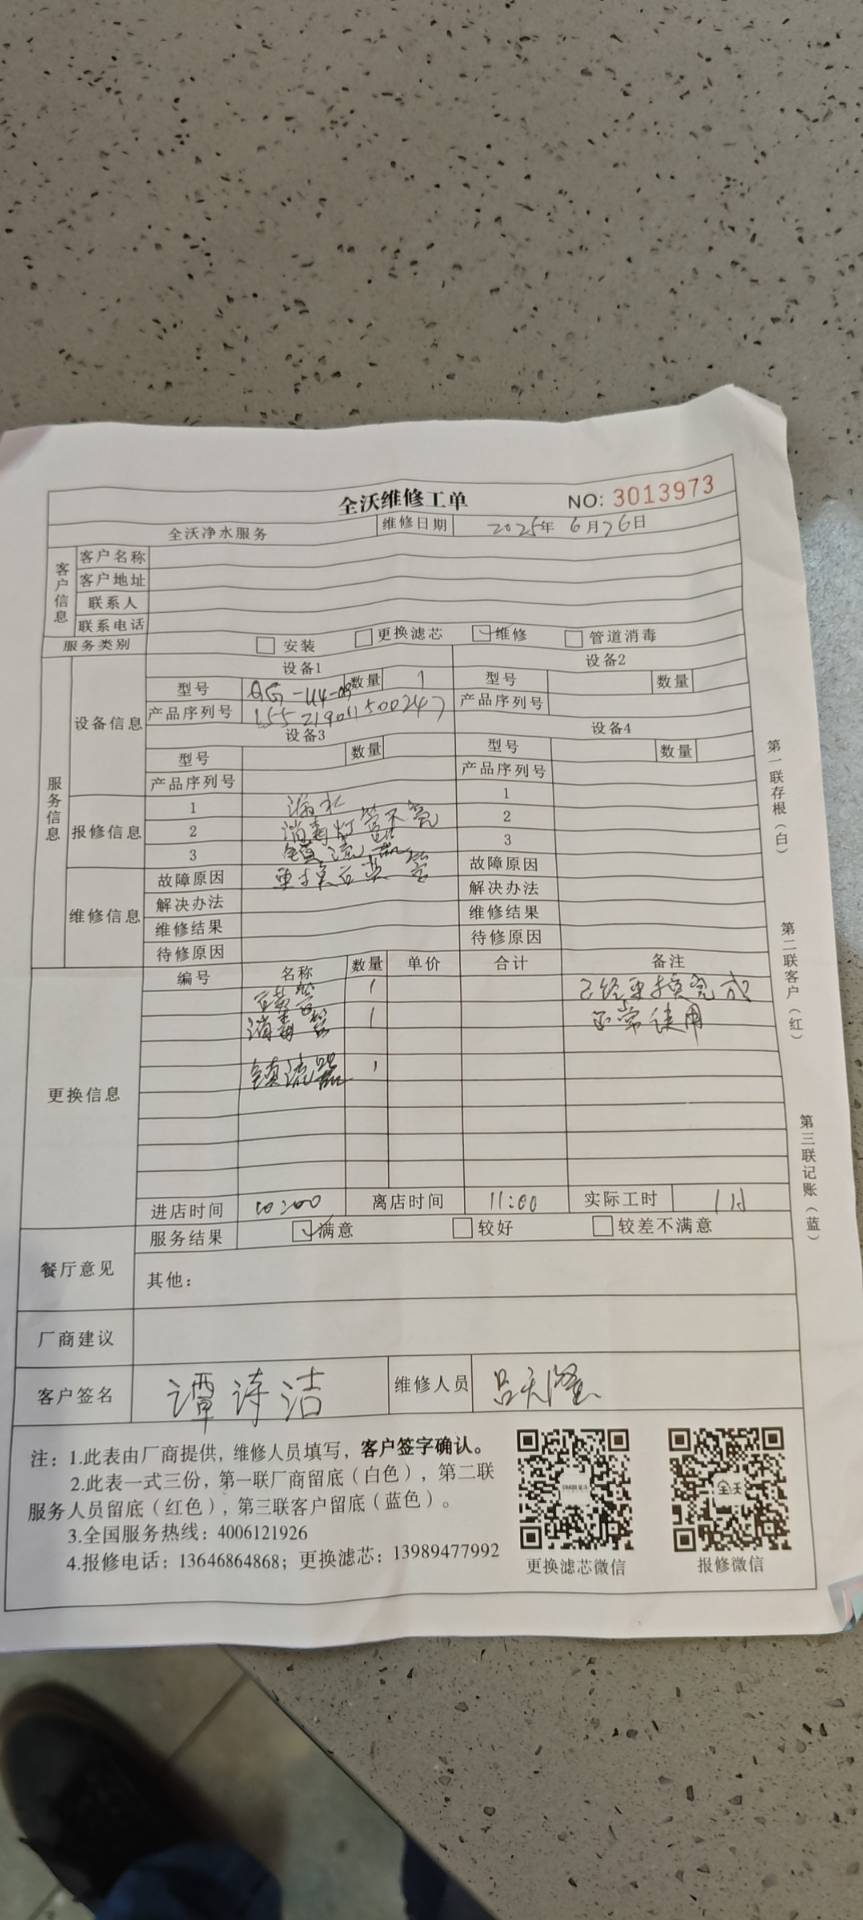 全沃维修工单 NO: 3013973
全沃净水服务 维修日期 2025年 6月26日
客户信息
客户名称
客户地址
联系人
联系电话
服务类别 安装 更换滤芯 维修 管道消毒
服务信息
设备信息
设备1 设备2
型号 数量 1 型号 数量
产品序列号 产品序列号
设备3 设备4
型号 数量 型号 数量
产品序列号 产品序列号
报修信息
1 漏水 1
2 消毒灯管不亮 2
3 镇流器 3
维修信息
故障原因 更换石英管 故障原因
解决办法 解决办法
维修结果 维修结果
待修原因 待修原因
更换信息
编号 名称 数量 单价 合计 备注
石英管 1 已经更换完成
消毒管 1 正常使用
镇流器 1
进店时间 10:00 离店时间 11:00 实际工时 1H
餐厅意见
服务结果 满意 较好 较差不满意
其他：
厂商建议
客户签名 谭诗洁 维修人员
注：1.此表由厂商提供，维修人员填写，客户签字确认。
2.此表一式三份，第一联厂商留底（白色），第二联
服务人员留底（红色），第三联客户留底（蓝色）。
3.全国服务热线：4006121926
4.报修电话：13646864868；更换滤芯：13989477992
更换滤芯微信 报修微信
全沃
第一联存根（白）
第二联客户（红）
第三联记账（蓝）